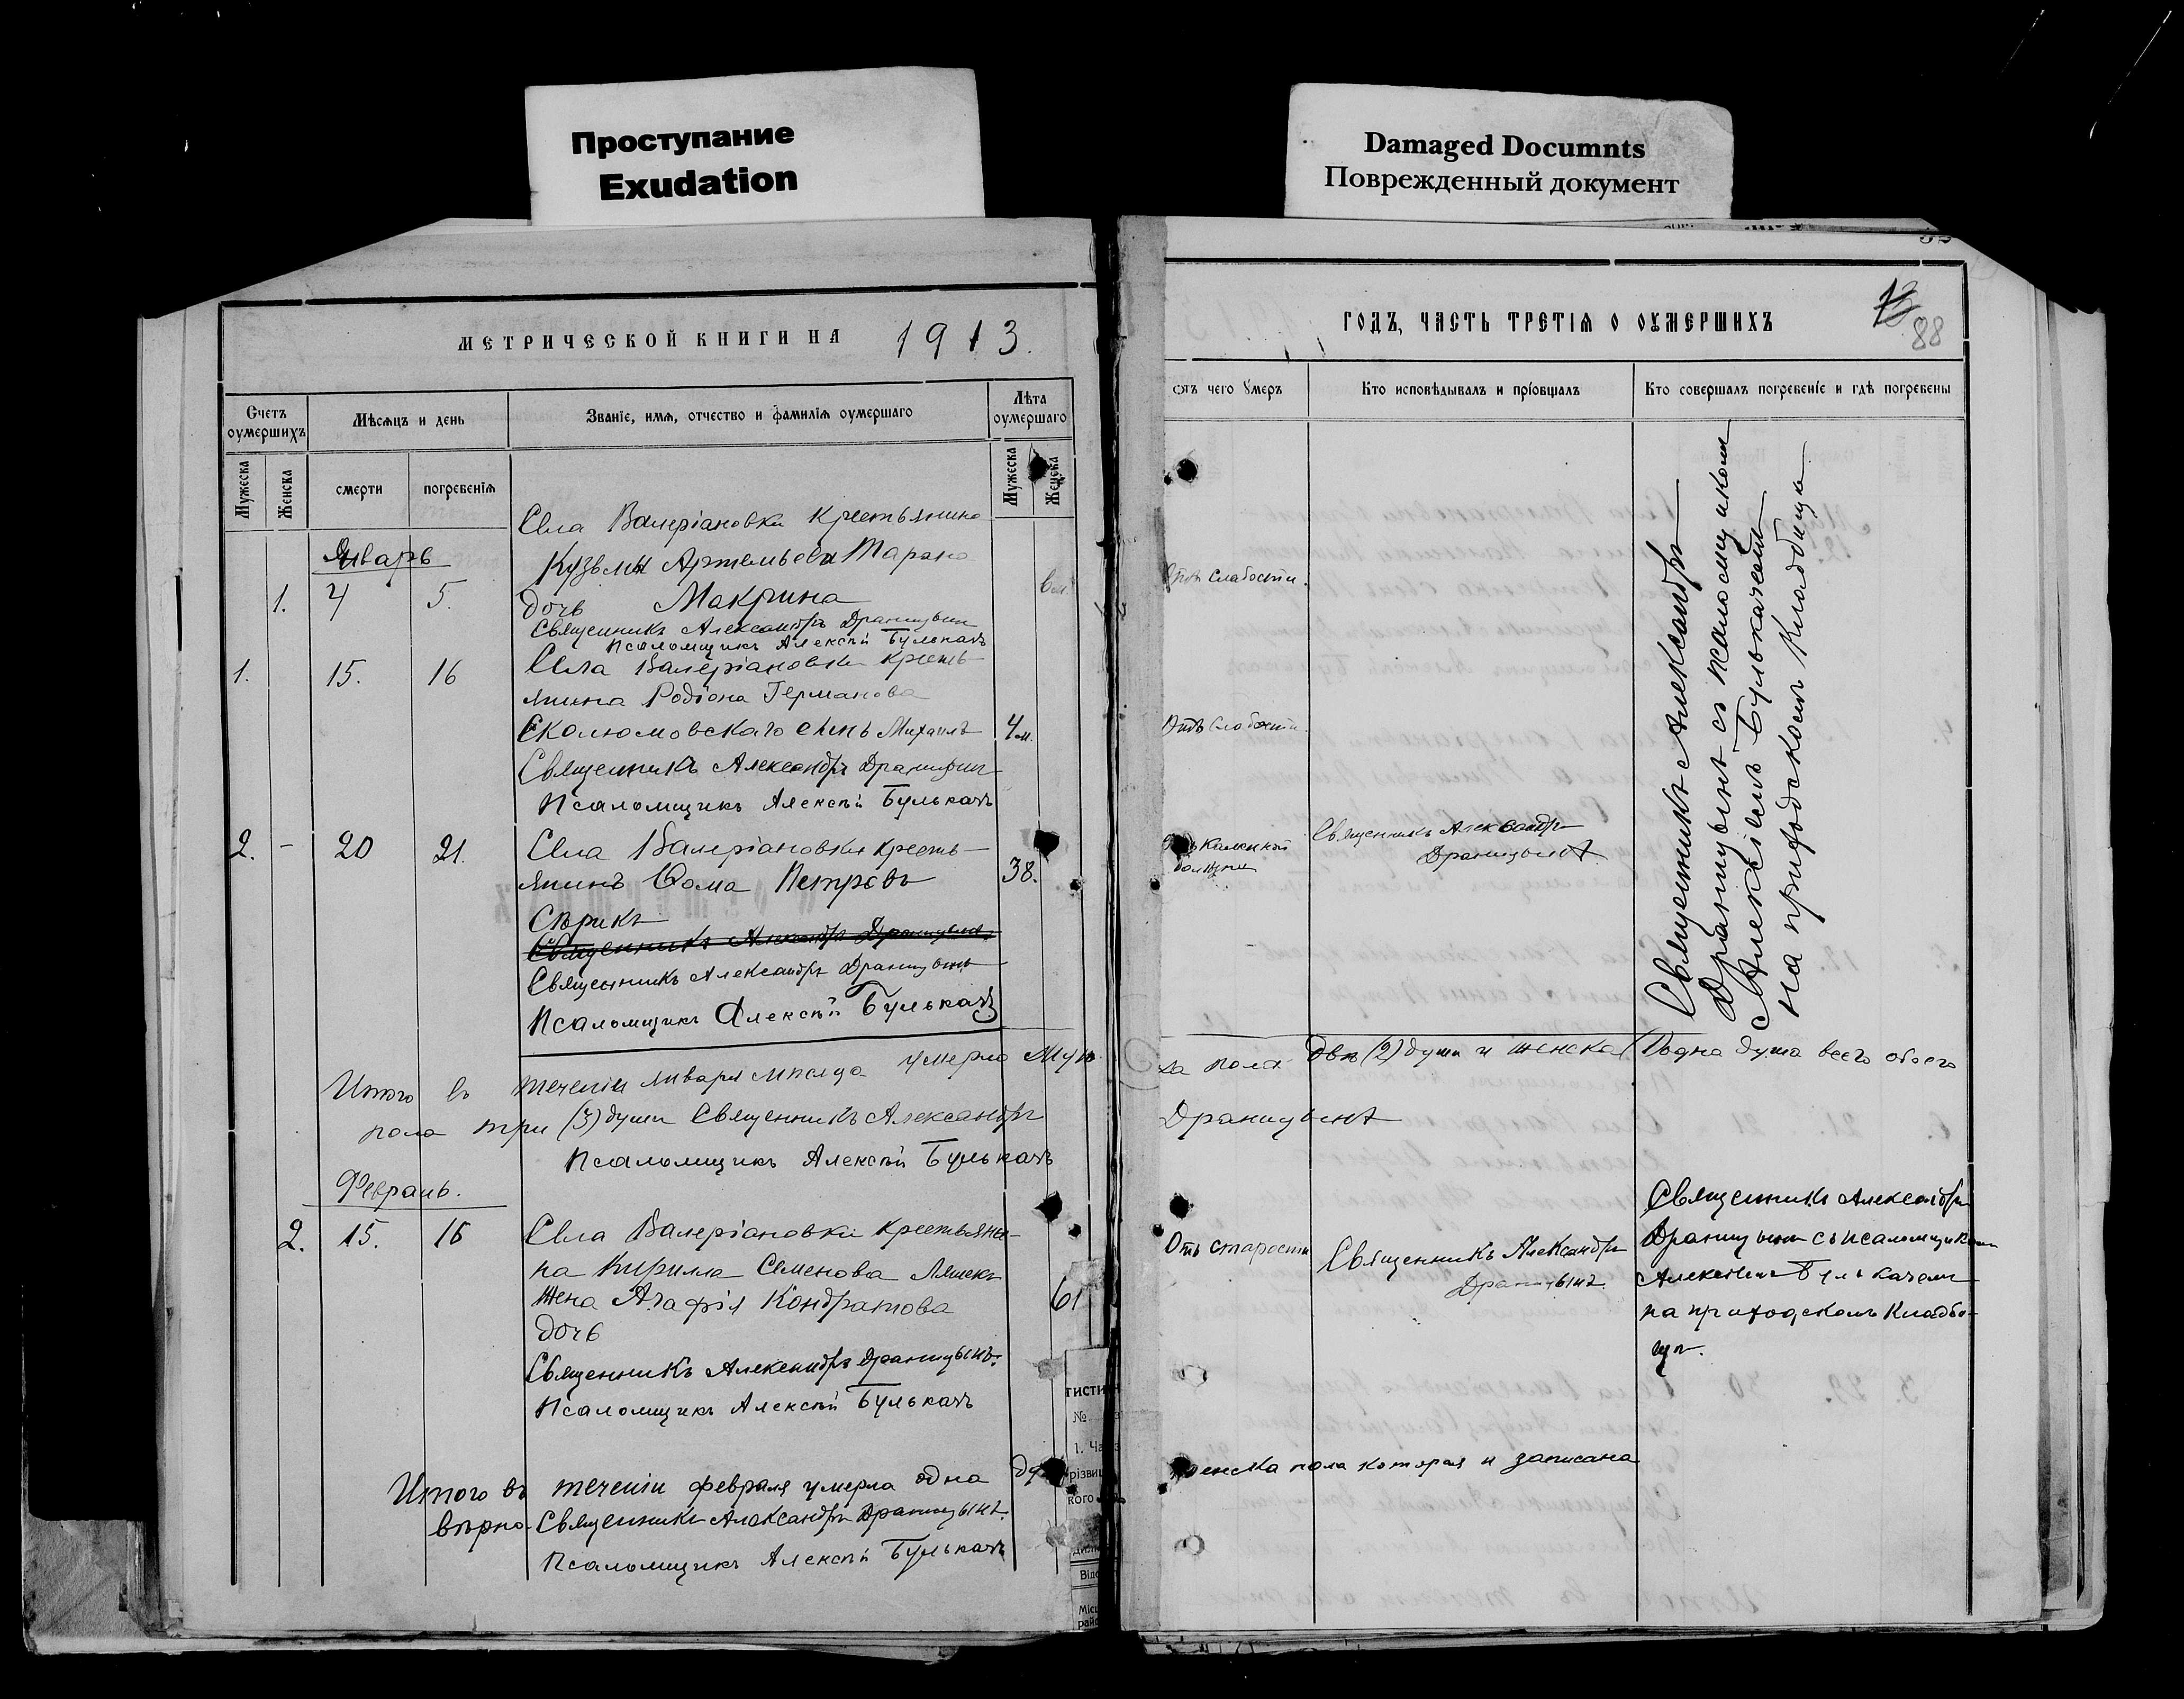 Проступание
Exudation
Damaged Documnts
Поврежденный документ
МЕТРИЧЕСКОЙ КНИГИ НА 1913.
Счетъ оумершихъ
Мѣсяцъ и день
Званіе, имя, отчество и фамилія оумершаго
Лѣта оумершаго
Мужеска
Женска
смерти
погребенія
Мужеска
Женска
Январь
Села Валеріановки крестьянина
Кузьмы Артемьева Тарана
1. 4 5. дочь Макрина
Священникъ Александръ Драницынъ
Псаломщикъ Алексѣй Булькачъ
1. 15. 16 Села Валеріановки кресть-
янина Родіона Германова
Сколюмовскаго сынъ Михаилъ 4 м.
Священникъ Александръ Драницынъ
Псаломщикъ Алексѣй Булькачъ
2. - 20 21. Села Валеріановки кресть-
янинъ Ѳома Петровъ 38.
Сѣрикъ
Священникъ Александръ Драницынъ
Священникъ Александръ Драницынъ
Псаломщикъ Алексѣй Булькачъ
Итого въ теченіи января мѣсяца умерло муж
пола три (3) души Священникъ Александръ
Псаломщикъ Алексѣй Булькачъ
Февраль.
2. 15. 16 Села Валеріановки крестьяни-
на Кирилла Семенова
жена Агафія Кондратова 61
дочь
Священникъ Александръ Драницынъ.
Псаломщикъ Алексѣй Булькачъ
Итого въ теченіи февраля умерла одна
вѣрно. Священникъ Александръ Драницынъ.
Псаломщикъ Алексѣй Булькачъ
тисти
№
1. Ча
різви
кого
Міс
рай
ГОДЪ, ЧАСТЬ ТРЕТІЯ О ОУМЕРШИХЪ
88
отъ чего умеръ
Кто исповѣдывалъ и пріобщалъ
Кто совершалъ погребеніе и гдѣ погребены
Отъ слабости.
Отъ слабости.
Священникъ Александръ
Драницынъ
Священникъ Александръ
Драницынъ съ псаломщикомъ
Алексѣемъ Булькачемъ
на приходскомъ кладбищѣ
ка пола двѣ (2) души и женска (1) одна душа всего обоего
Драницынъ
Отъ старости
Священникъ Александръ
Драницынъ.
Священникъ Александръ
Драницынъ съ псаломщикомъ
Алексѣемъ Булькачемъ
на приходскомъ кладби-
щѣ.
женска пола которая и записана